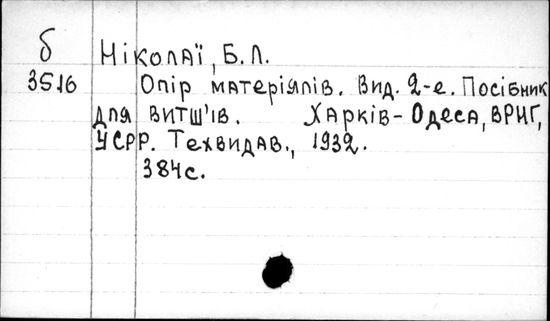 б
3516
Ніколаї, Б.Л.
Опір матеріялів. Вид. 2-е. Посібник
для витш'ів. Харків-Одеса, ВРНГ,
УСРР. Техвидав., 1932.
384с.